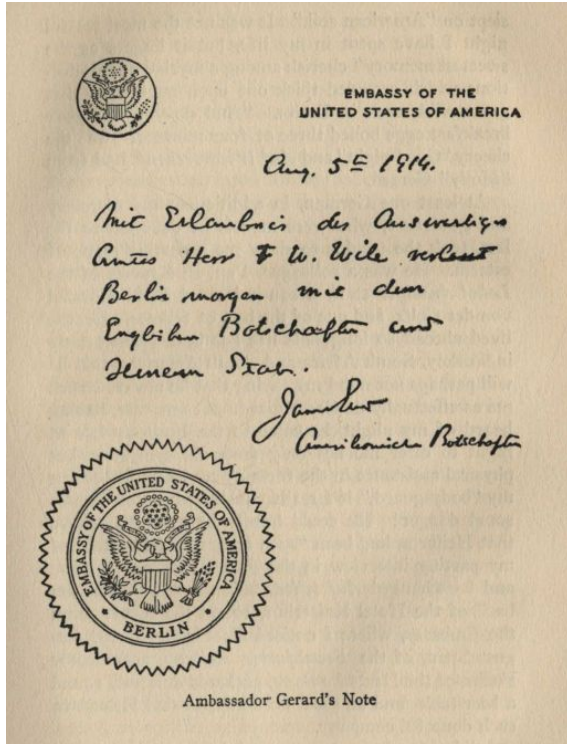 EMBASSY OF THE
UNITED STATES OF AMERICA
Aug. 5th 1914.
Mit Erlaubnis des Auswertigen
Amtes Herr F W. Wile verlasst
Berlin morgen mit dem
Englischen Botschafter und
seinem Stab.
Amerikanischer Botschafter
EMBASSY OF THE UNITED STATES OF AMERICA
BERLIN
Ambassador Gerard's Note